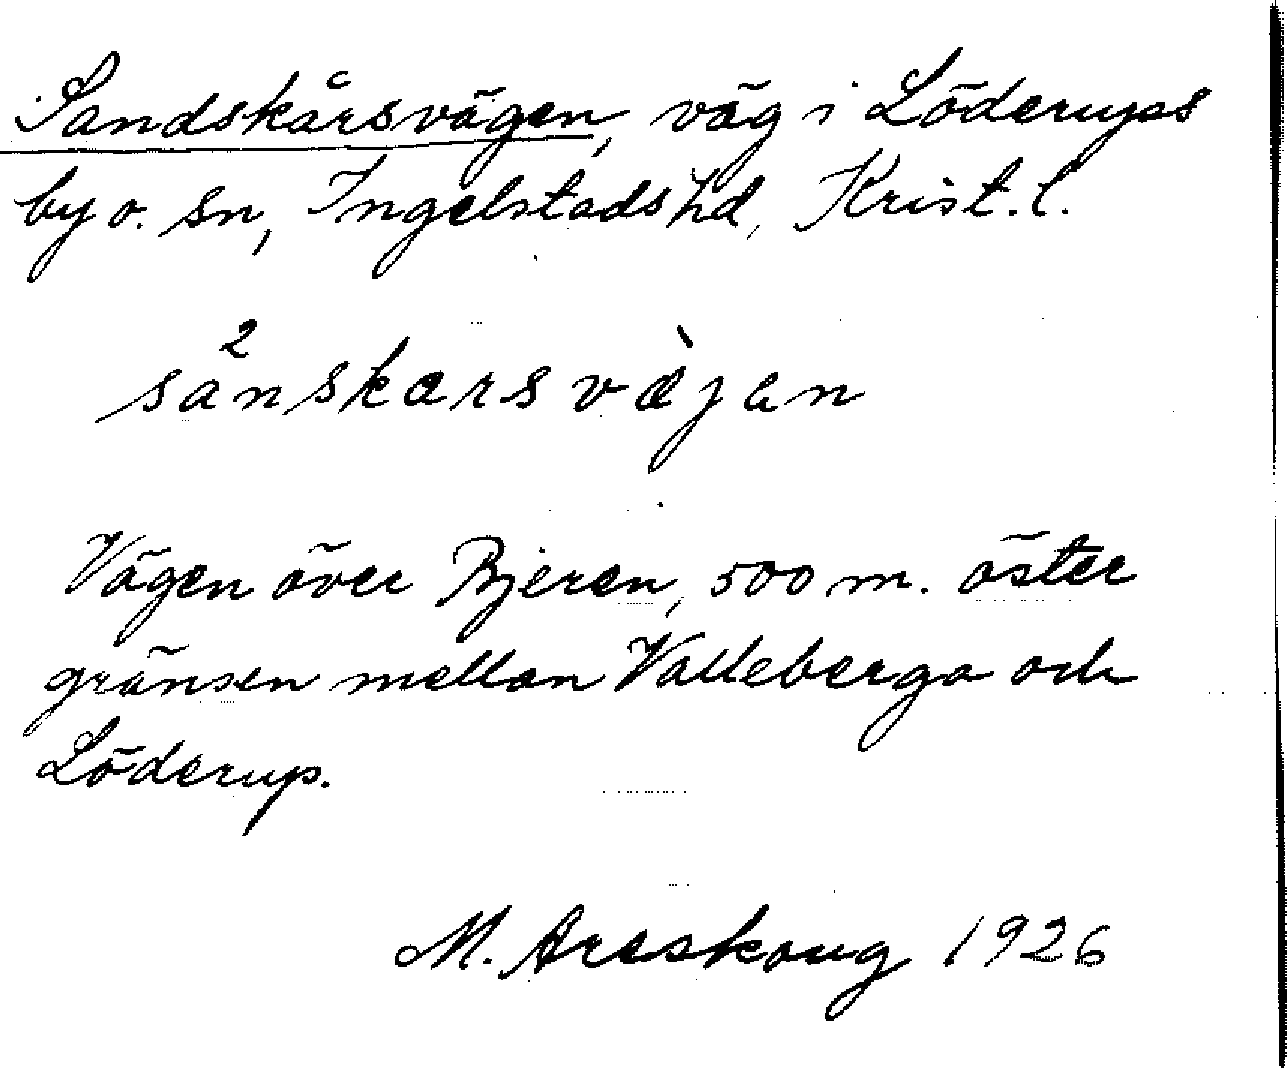 Sandskårsvägen, väg i Löderups
by o. sn, Ingelstads hd, Krist. l.
så²nskarsvæ̀jen
Vägen över Bjeren, 500 m. öster
gränsen mellan Valleberga och
Löderup.
M. Areskoug 1926